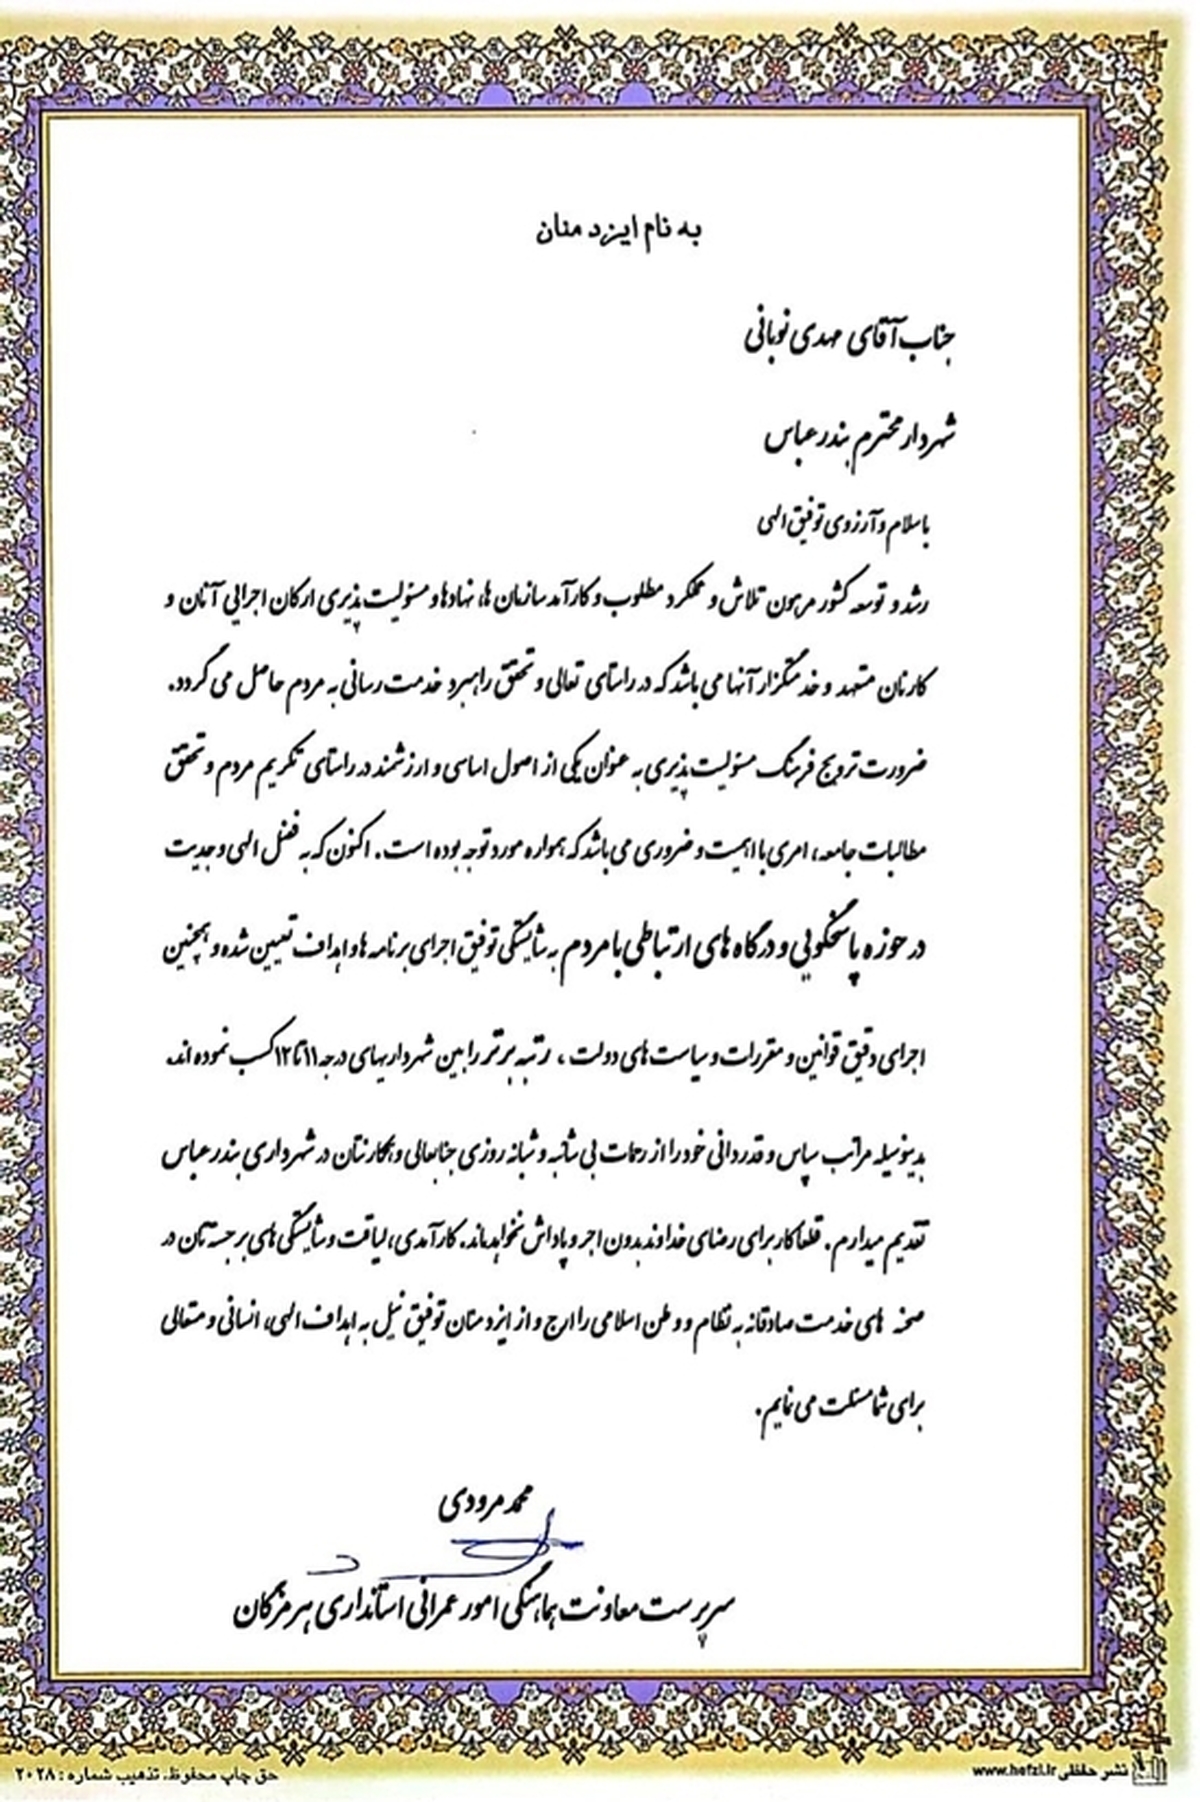 به نام ایزد منان
جناب آقای مهدی نوبانی
شهردار محترم بندرعباس
باسلام و آرزوی توفیق الهی
رشد و توسعه کشور مرهون تلاش و عملکرد مطلوب و کارآمد سازمان ها، نهادها و مسئولیت پذیری ارکان اجرایی آنان و
کارکنان متعهد و خدمتگزار آنها می باشد که در راستای تعالی و تحقق راهبرد خدمت رسانی به مردم حاصل می گردد.
ضرورت ترویج فرهنگ مسئولیت پذیری به عنوان یکی از اصول اساسی و ارزشمند در راستای تکریم مردم و تحقق
مطالبات جامعه، امری با اهمیت و ضروری می باشد که همواره مورد توجه بوده است. اکنون که به فضل الهی و جدیت
در حوزه پاسخگویی و درگاه های ارتباطی با مردم به شایستگی توفیق اجرای برنامه ها و اهداف تعیین شده و همچنین
اجرای دقیق قوانین و مقررات و سیاست های دولت ، رتبه برتر را بین شهرداریهای درجه ۱۱ تا ۱۲ کسب نموده اند.
بدینوسیله مراتب سپاس و قدردانی خود را از زحمات بی شائبه و شبانه روزی جنابعالی و همکارانتان در شهرداری بندرعباس
تقدیم میدارم. قطعا کار برای رضای خداوند بدون اجر و پاداش نخواهد ماند. کارآمدی، لیاقت و شایستگی های برجسته تان در
صحنه های خدمت صادقانه به نظام و وطن اسلامی را ارج و از ایزد منان توفیق نیل به اهداف الهی، انسانی و متعالی
برای شما مسئلت می نمایم.
محمد مرودی
سرپرست معاونت هماهنگی امور عمرانی استانداری هرمزگان
نشر حافظی www.hefzi.ir
حق چاپ محفوظ. تذهیب شماره : ۲۰۲۸